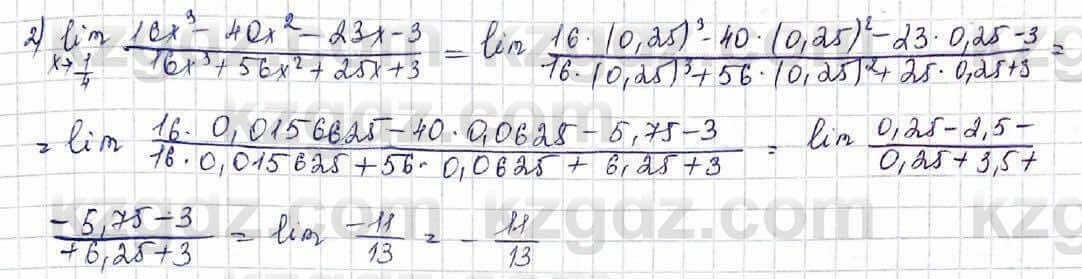 2) lim x→1/4 (16x³ - 40x² - 23x - 3)/(16x³ + 56x² + 25x + 3) = lim (16 · (0,25)³ - 40 · (0,25)² - 23 · 0,25 - 3)/(16 · (0,25)³ + 56 · (0,25)² + 25 · 0,25 + 3) =
= lim (16 · 0,0156625 - 40 · 0,0625 - 5,75 - 3)/(16 · 0,015625 + 56 · 0,0625 + 6,25 + 3) = lim (0,25 - 2,5 -)/(0,25 + 3,5 +)
(-5,75 - 3)/(+6,25 + 3) = lim -11/13 = - 11/13
kzgdz.com